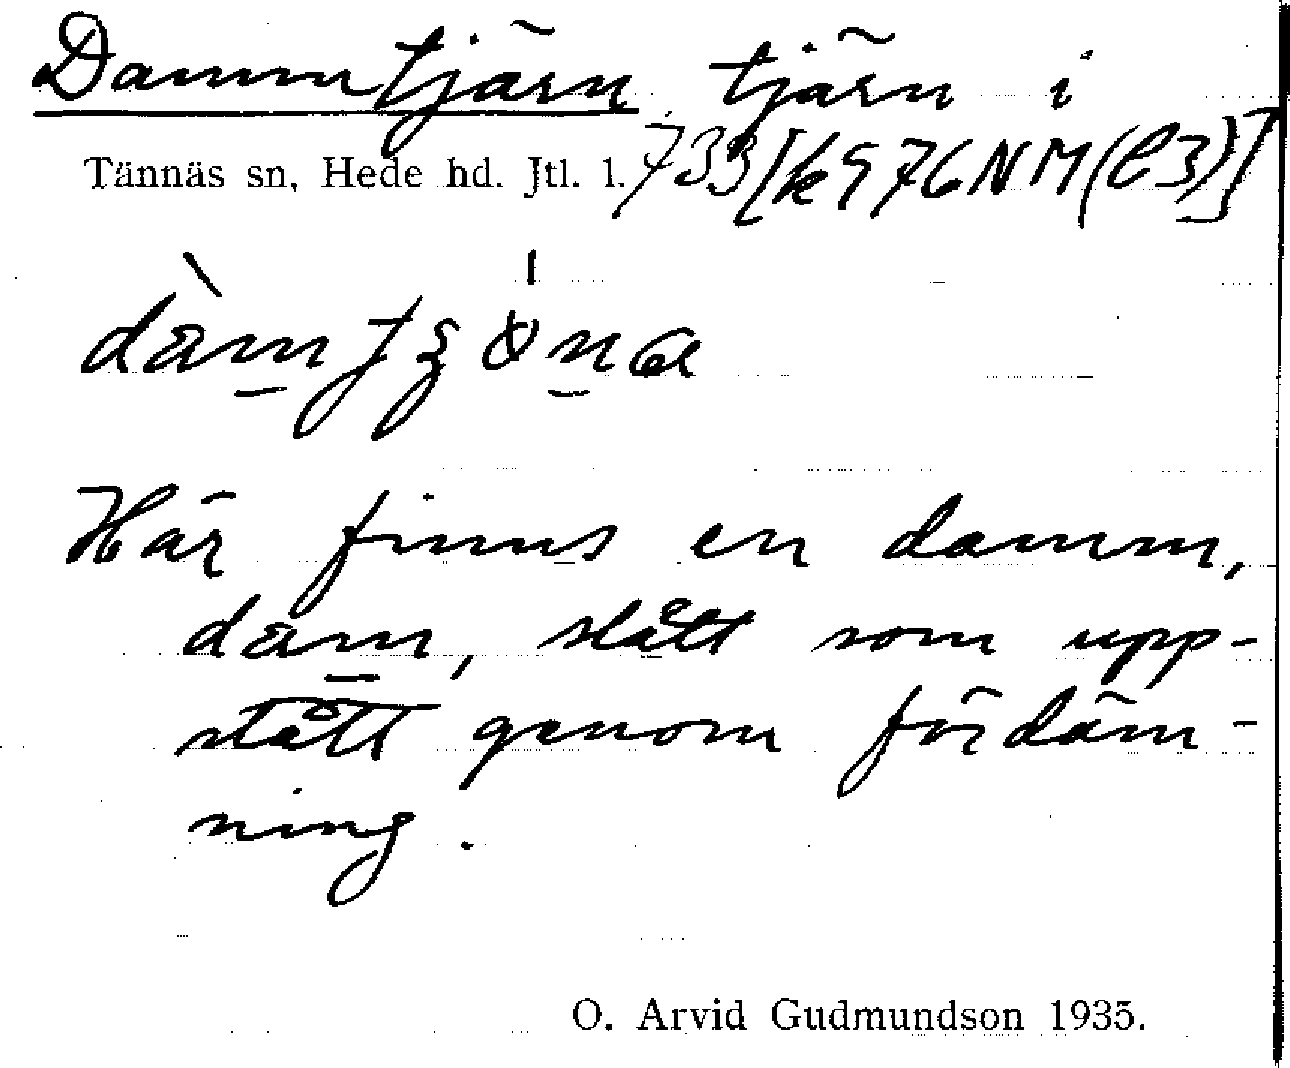 Dammtjärn tjärn i
Tännäs sn, Hede hd. Jtl. l. 733[k 976 NM(C3)]
Här finns en damm,
dam, slått som upp-
stått genom fördäm-
ning.
O. Arvid Gudmundson 1935.